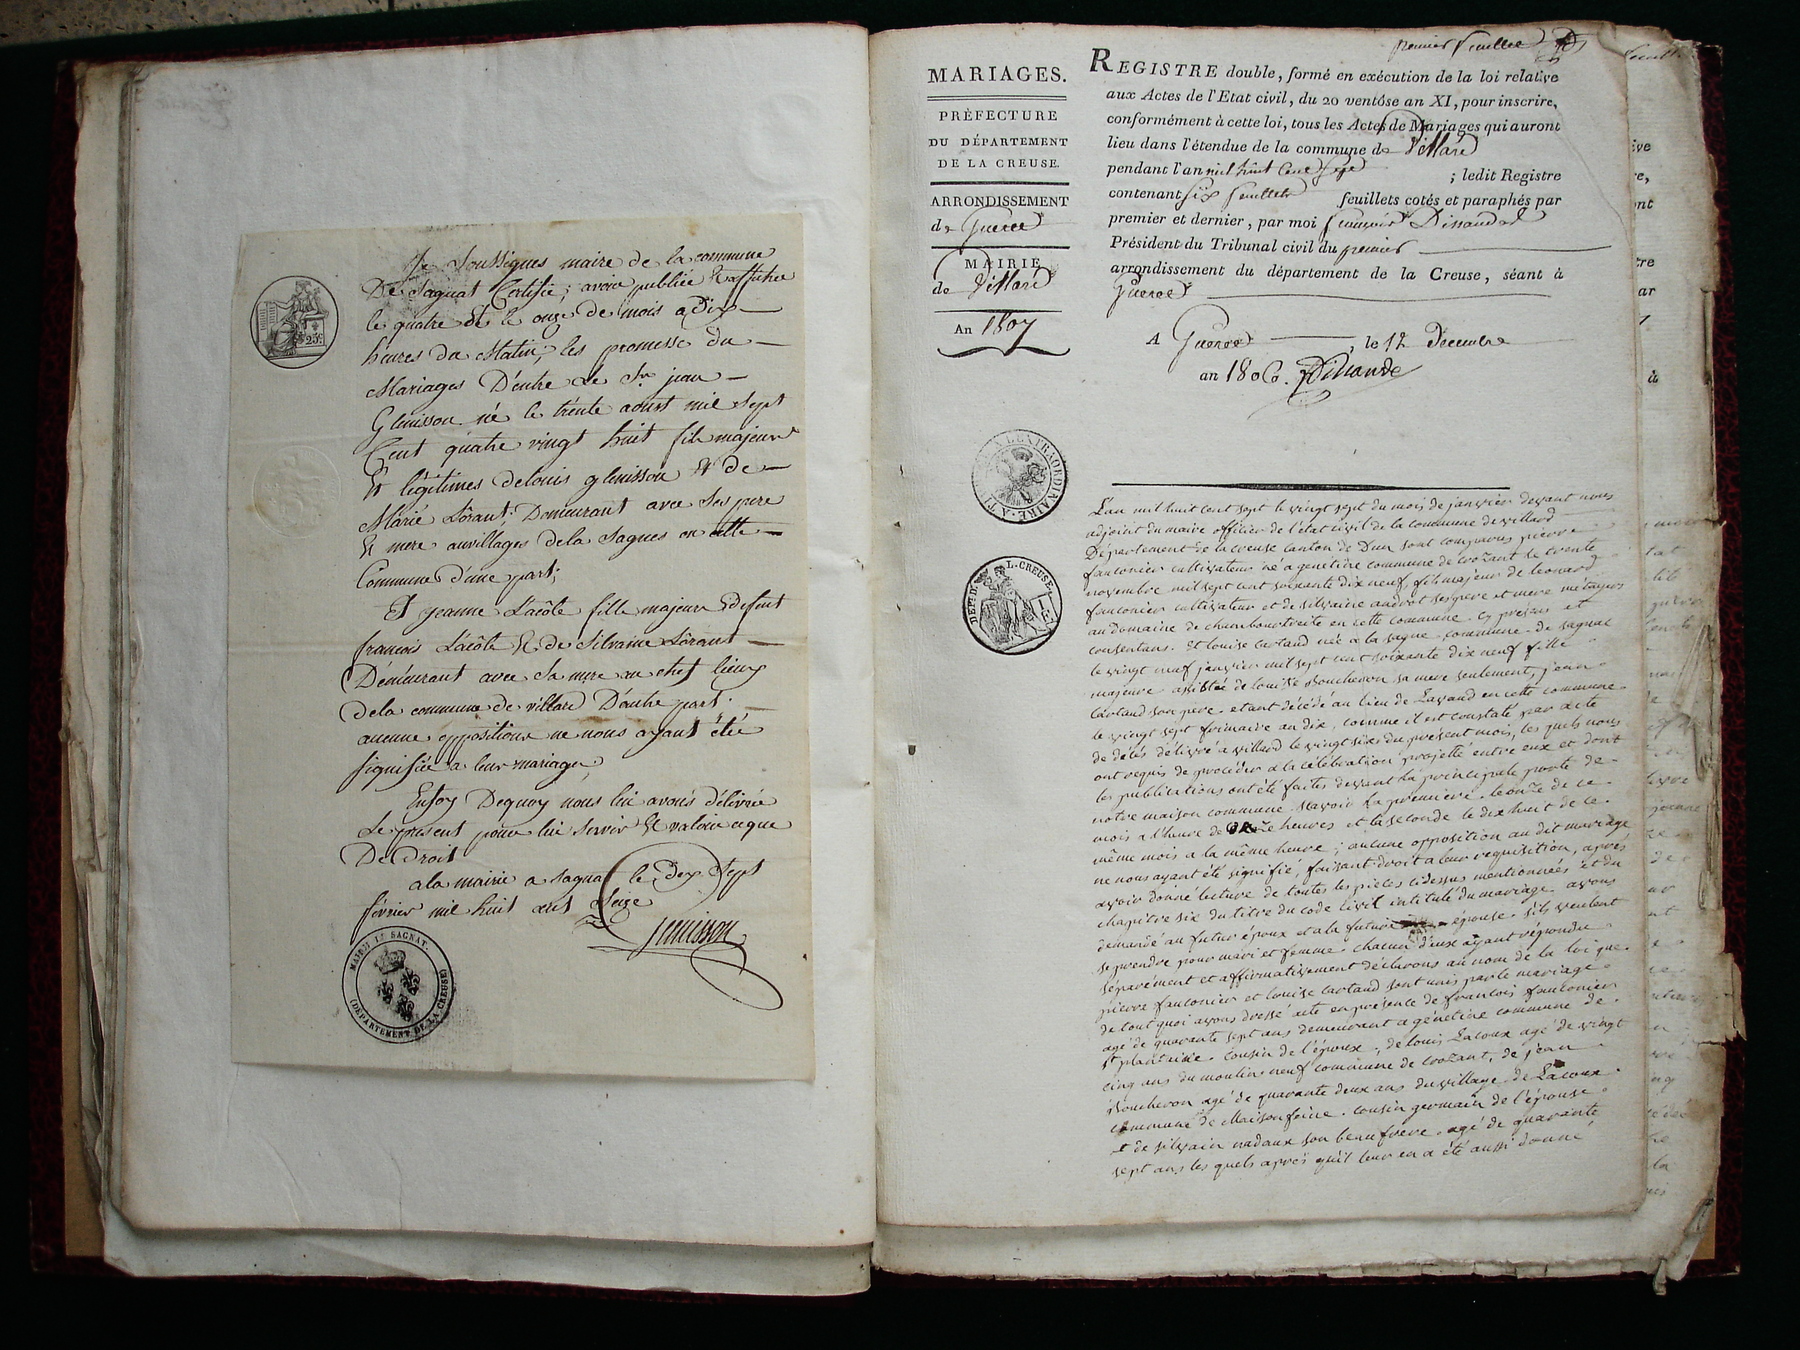 Je soussignés maire de la commune
De Sagnat Certifie; avoir publiée et affichée
le quatre et le onze de mois a Dix
heures du Matin, les promesse du
Mariages D'entre le Sr jean
Glenisson né le trente aoust mil sept
Cent quatre vingt huit fils majeur
Et légitimes delouis glenisson et de
Marié Lorant; Demeurant avec Ses pere
Et mere auvillages dela Sagnes en cette
Commune d'une part;
Et jeanne Lacôte fille majeur de
françois Lacôte et de Silvaine Lorant
Démeurant avec Sa mere au chef lieux
dela commune de villard D'autre part.
aucune oppositions ne nous ayant été
signifiée a leur mariages
Enfoy Dequoy nous lui avons délivrée
Le present pour lui servir Et valoir ceque
De Droit
ala mairie a Sagnat le dix Sept
février mil huit cent Seize
Glenisson
25c
MAIRIE DE SAGNAT.
(DÉPARTEMENT DE LA CREUSE)
premier feuillet
MARIAGES.
PRÉFECTURE
DU DÉPARTEMENT
DE LA CREUSE.
ARRONDISSEMENT
de Gueret
MAIRIE
de Villard
An 1807
REGISTRE double, formé en exécution de la loi relative
aux Actes de l'Etat civil, du 20 ventôse an XI, pour inscrire,
conformément à cette loi, tous les Actes de Mariages qui auront
lieu dans l'étendue de la commune de Villard
pendant l'an mil huit cent sept ; ledit Registre
contenant six feuillets feuillets cotés et paraphés par
premier et dernier, par moi françois Dissandes
Président du Tribunal civil du premier
arrondissement du département de la Creuse, séant à
Gueret
A Gueret, le 12 Decembre
an 1806.
L'EXTRAORDINAIRE
DEPT. DE L. CREUSE
L'an mil huit cent sept le vingt sept du mois de janvier devant nous
adjoint du maire officier de l'état civil de la commune de villard
Département de la creuse canton de Dun sont comparus pierre
fauconier cultivateur né a genetire commune de crozant le trente
novembre mil sept cent soixante dix neuf, fils majeur de leonard
fauconier cultivateur et de silvaine ses pere et mere métayers
au domaine de en cette commune cy presens et
consentans. Et louise cartaud née a la sagne commune de sagnac
le vingt neuf janvier mil sept cent soixante dix neuf fille
majeure assistée de louise Boucheron sa mere seulement, jean
cartaud son pere etant décédé au lieu de Lavaud en cette commune
le vingt sept frimaire an dix, comme il est constaté par acte
de décés délivré a villard le vingt six du présent mois, les quels nous
ont requis de procéder a la célébration projettée entre eux et dont
les publications ont été faites devant la principale porte de
notre maison commune. Savoir la premiere le onze de ce
mois a l'heure de onze heures et la seconde le dix huit de ce
même mois a la même heure; aucune opposition au dit mariage
ne nous ayant été signifié, faisant droit a leur requisition, apres
avoir donné lecture de toutes les pieces cidessus mentionnées et du
chapitre six du titre du code civil intitulé du mariage avons
demandé au futur époux et a la future épouse s'ils veulent
se prendre pour mari et femme. chacun d'eux ayant répondu
séparément et affirmativement déclarons au nom de la loi que
pierre fauconier et louise cartaud sont unis par le mariage.
de tout quoi avons dressé acte en présence de francois fauconier
agé de quarante sept ans demeurant a génetire commune de
st plantaire cousin de l'époux, de louis Lacoux agé de vingt
cinq ans du moulin neuf commune de crozant, de jean
Boucheron agé de quarante deux ans du village de Lacoux
commune de Maisonfeine. cousin germain de l'épouse
et de silvain nadaux son beau frere. agé de quarante
sept ans les quels après qu'il leur en a été aussi donné